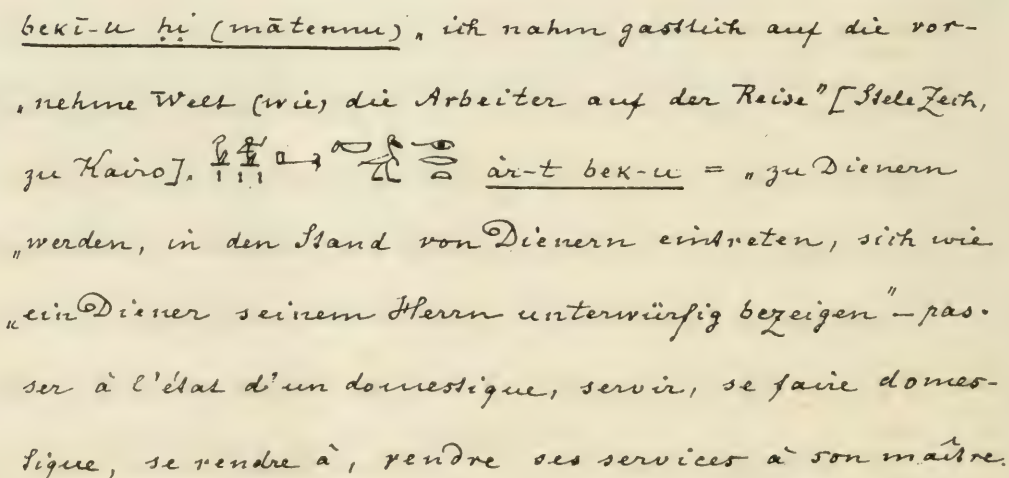 bekī-u ḥi (mātennu) „ ich nahm gastlich auf die vor-
„nehme Welt (wie) die Arbeiter auf der Reise” [Stele Zech,
zu Kairo]. ȧr-t bek-u = „ zu Dienern
„werden, in den Stand von Dienern eintreten, sich wie
„ein Diener seinem Herrn unterwürfig bezeigen” – pas-
ser à l'état d'un domestique, servir, se faire domes-
tique, se rendre à, rendre ses services à son maître.